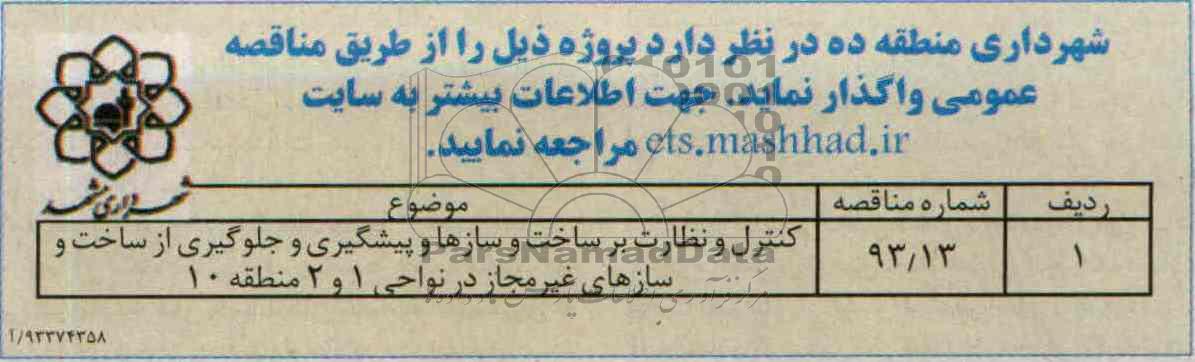 شهرداری منطقه ده در نظر دارد پروژه ذیل را از طریق مناقصه
عمومی واگذار نماید. جهت اطلاعات بیشتر به سایت
ets.mashhad.ir مراجعه نمایید.
شهرداری مشهد
ردیف شماره مناقصه موضوع
۱ ۹۳/۱۳ کنترل و نظارت بر ساخت و سازها و پیشگیری و جلوگیری از ساخت و
سازهای غیرمجاز در نواحی ۱ و ۲ منطقه ۱۰
ParsNamadData
۹۳۳۷۴۳۵۸/آ